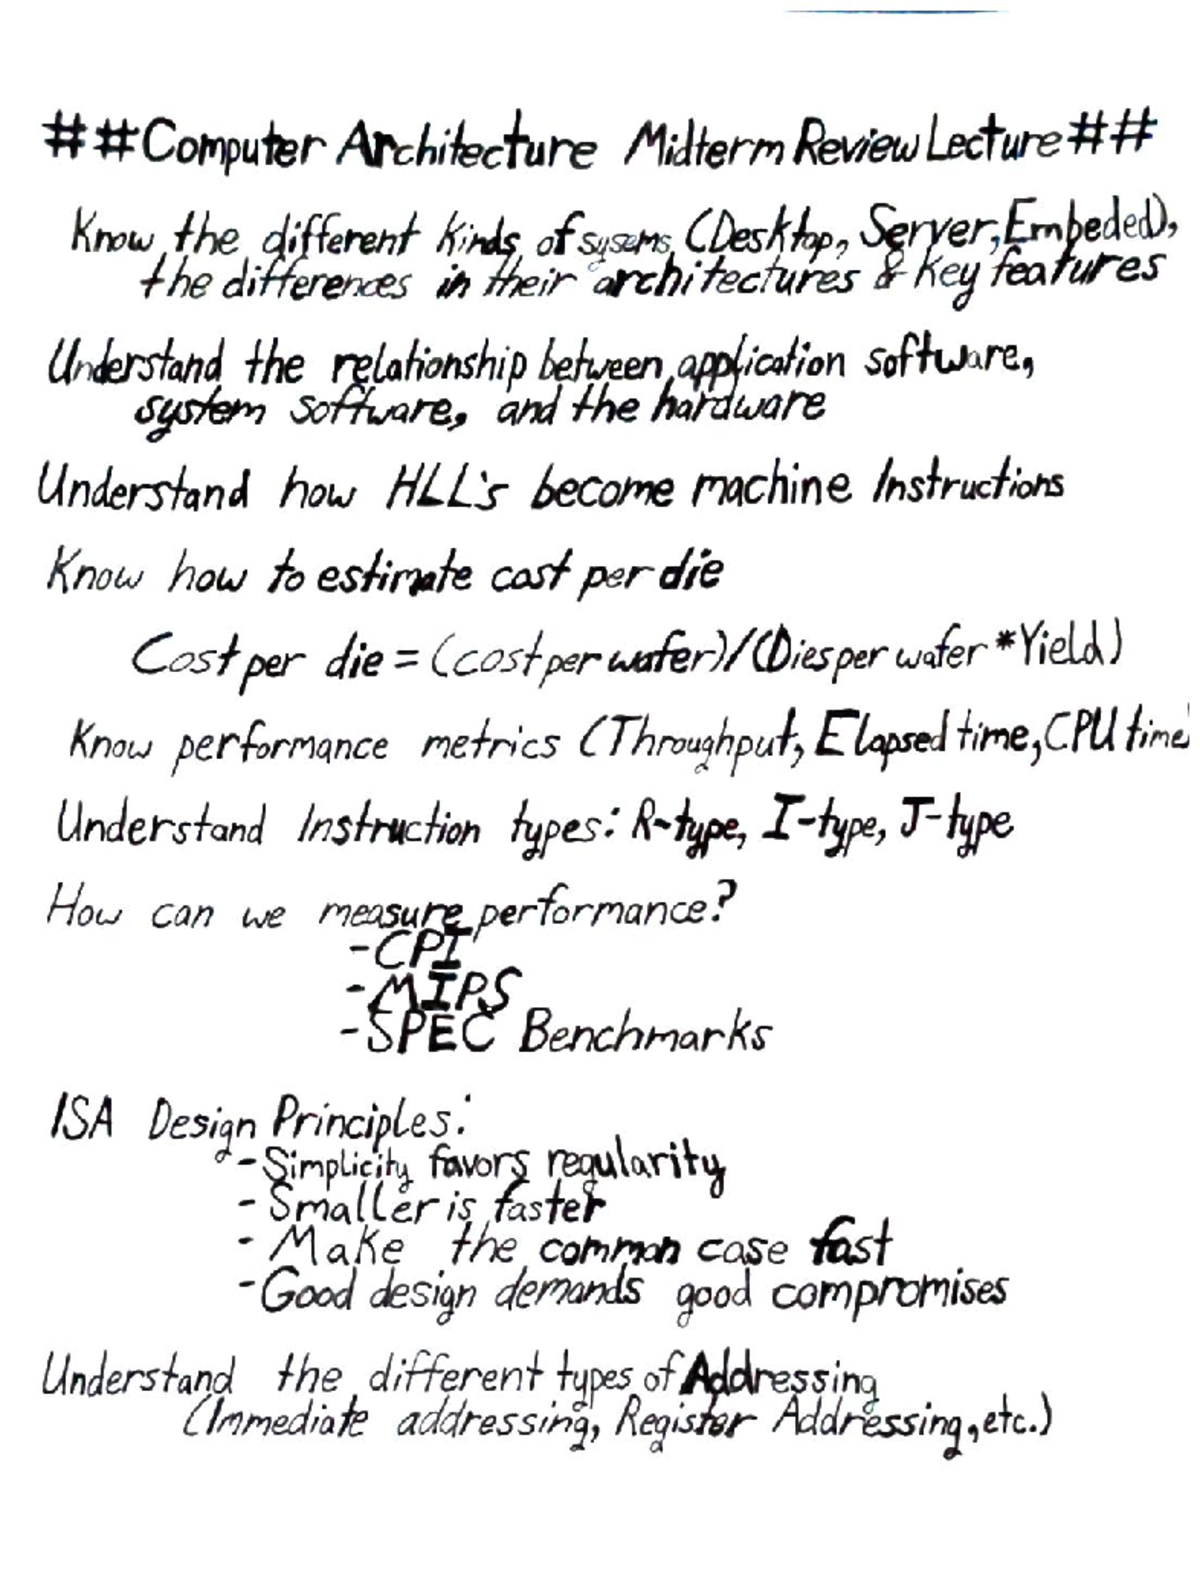 ##Computer Architecture Midterm Review Lecture##
Know the different kinds of sysems (Desktop, Server, Embeded),
the differences in their architectures & key features
Understand the relationship between application software,
system software, and the hardware
Understand how HLL's become machine Instructions
Know how to estimate cost per die
Cost per die = (cost per wafer)/(Dies per wafer * Yield)
Know performance metrics (Throughput, Elapsed time, CPU time)
Understand Instruction types: R-type, I-type, J-type
How can we measure performance?
-CPI
-MIPS
-SPEC Benchmarks
ISA Design Principles:
-Simplicity favors regularity
-Smaller is faster
-Make the common case fast
-Good design demands good compromises
Understand the different types of Addressing
(Immediate addressing, Register Addressing, etc.)